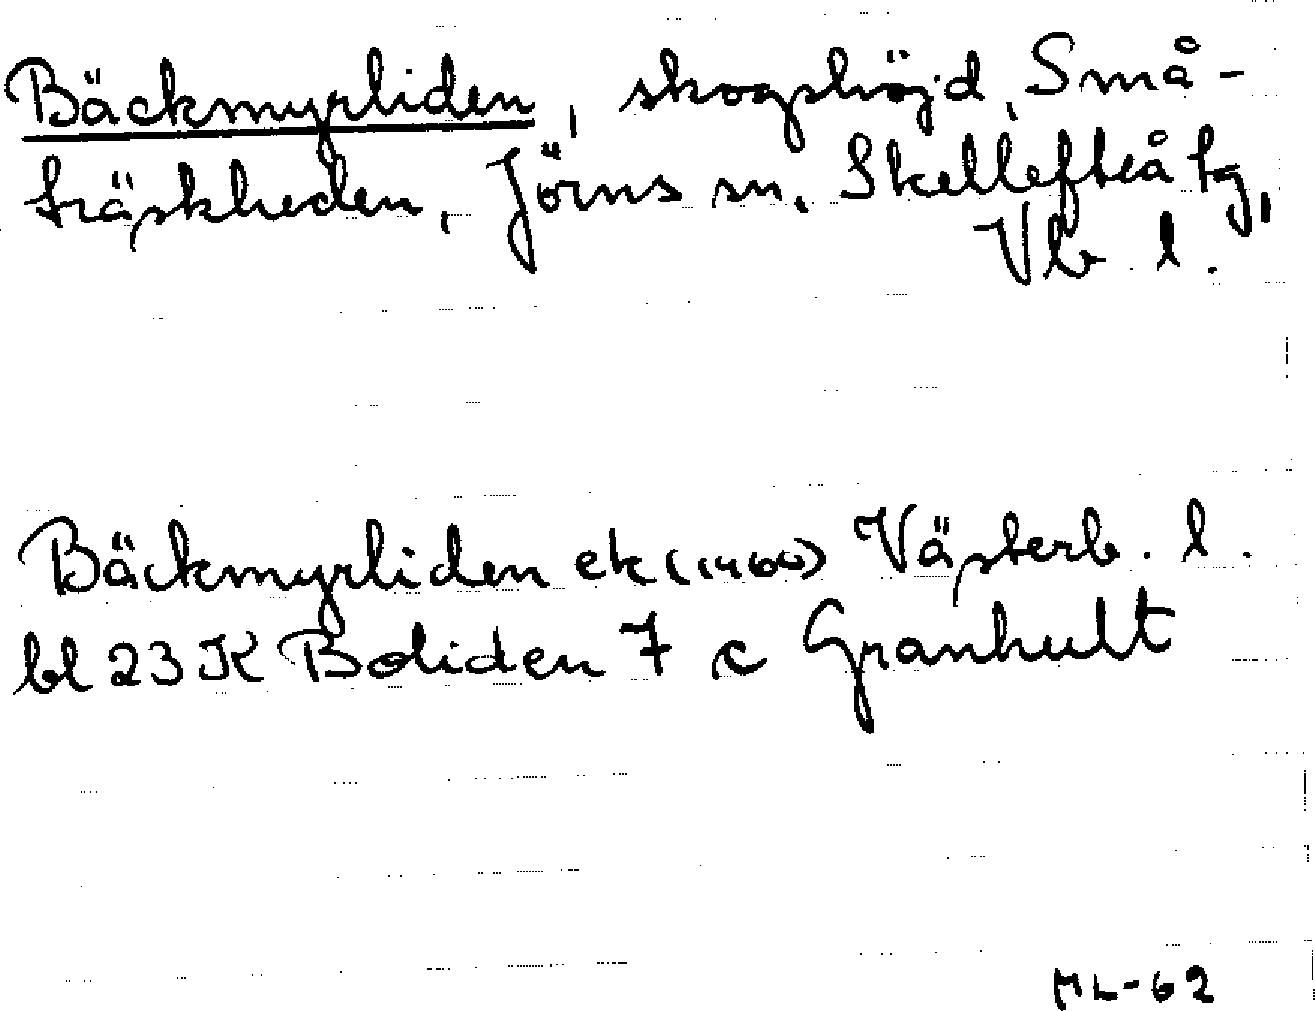 Bäckmyrliden, skogshöjd, Små-
träskheden, Jörns sn, Skellefteå tg,
Vb l.
Bäckmyrliden ek (1960) Västerb. l.
bl 23 K Boliden 7 c Granhult
ML-62